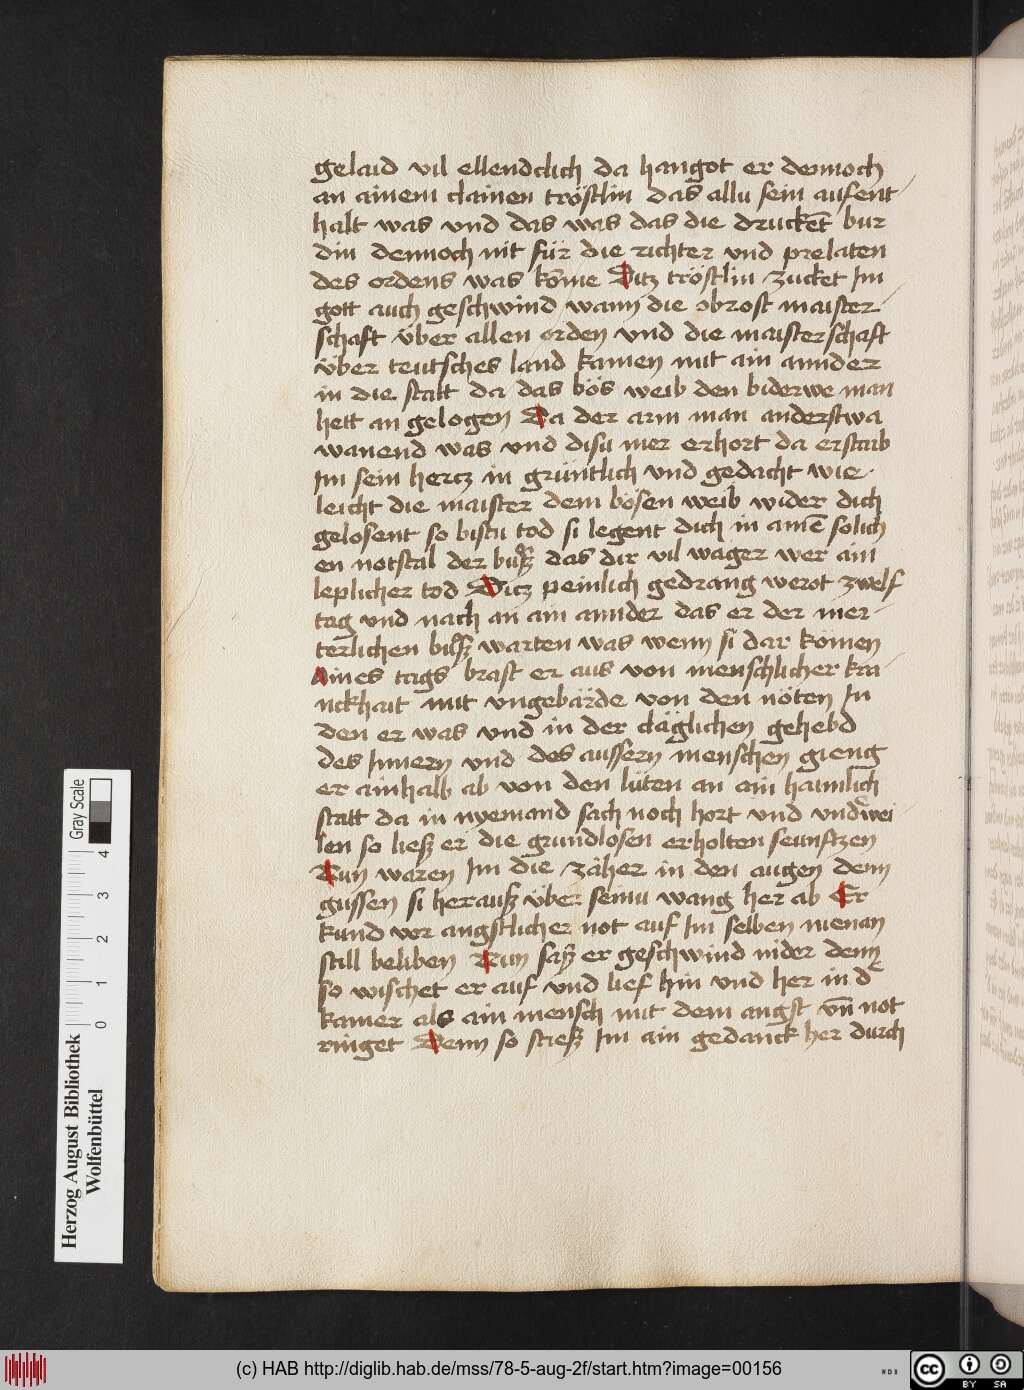 gelaid vil ellendclich da hangot er dennoch
an ainem clainen tröstlin das allu sein aufent
halt was vnd das was das die druckēt bur
din dennoch nit für die richter vnd prelaten
des ordens was kōme Ditz tröstlin zucket Im
gott auch geschwind wann die obrost maister
schaft über allen orden vnd die maisterschaft
über teutsches land kamen mit ain annider
in die statt da das bös weib den biderwe man
hett an gelogen Da der arm man anderstwa
wanend was vnd disu mer erhort da erstarb
Im sein hercz in grüntlich vnd gedacht wie
leicht die maister dem bösen weib wider dich
gelosent so bistu tod si legent dich in ainē solich
en notstal der buſz das dir vil wäger wer ain
leplicher tod Dicz peinlich gedrang werot zwelf
tag vnd nach an ain annider das er der mer
terlichen buſz warten was wenn si dar kömen
Aines tags brast er aus von menschlicher kra
nckhait mit vngebärde von den nöten In
den er was vnd in der cläglichen gehebd
des Innern vnd des aussern menschen gieng
er ainhalb ab von den lüten an ain haimlich
statt da in nyemand sach noch hort vnd vnderwei
len so lieſz er die grundlosen erholten seunftzen
Nun waren Im die zäher in den augen denn
gussen si herauſz über seinu wang her ab Er
kund vor angstlicher not auf Im selben nienan
still beliben Nun saſz er geschwind nider denn
so wischet er auf vnd lief hin vnd her in dē
kamer als ain mensch mit dem angst vn̄ not
ringet Denn so stieſz Im ain gedanck her durch
Herzog August Bibliothek
Wolfenbüttel
Gray Scale
0 1 2 3 4
(c) HAB http://diglib.hab.de/mss/78-5-aug-2f/start.htm?image=00156
cc BY SA